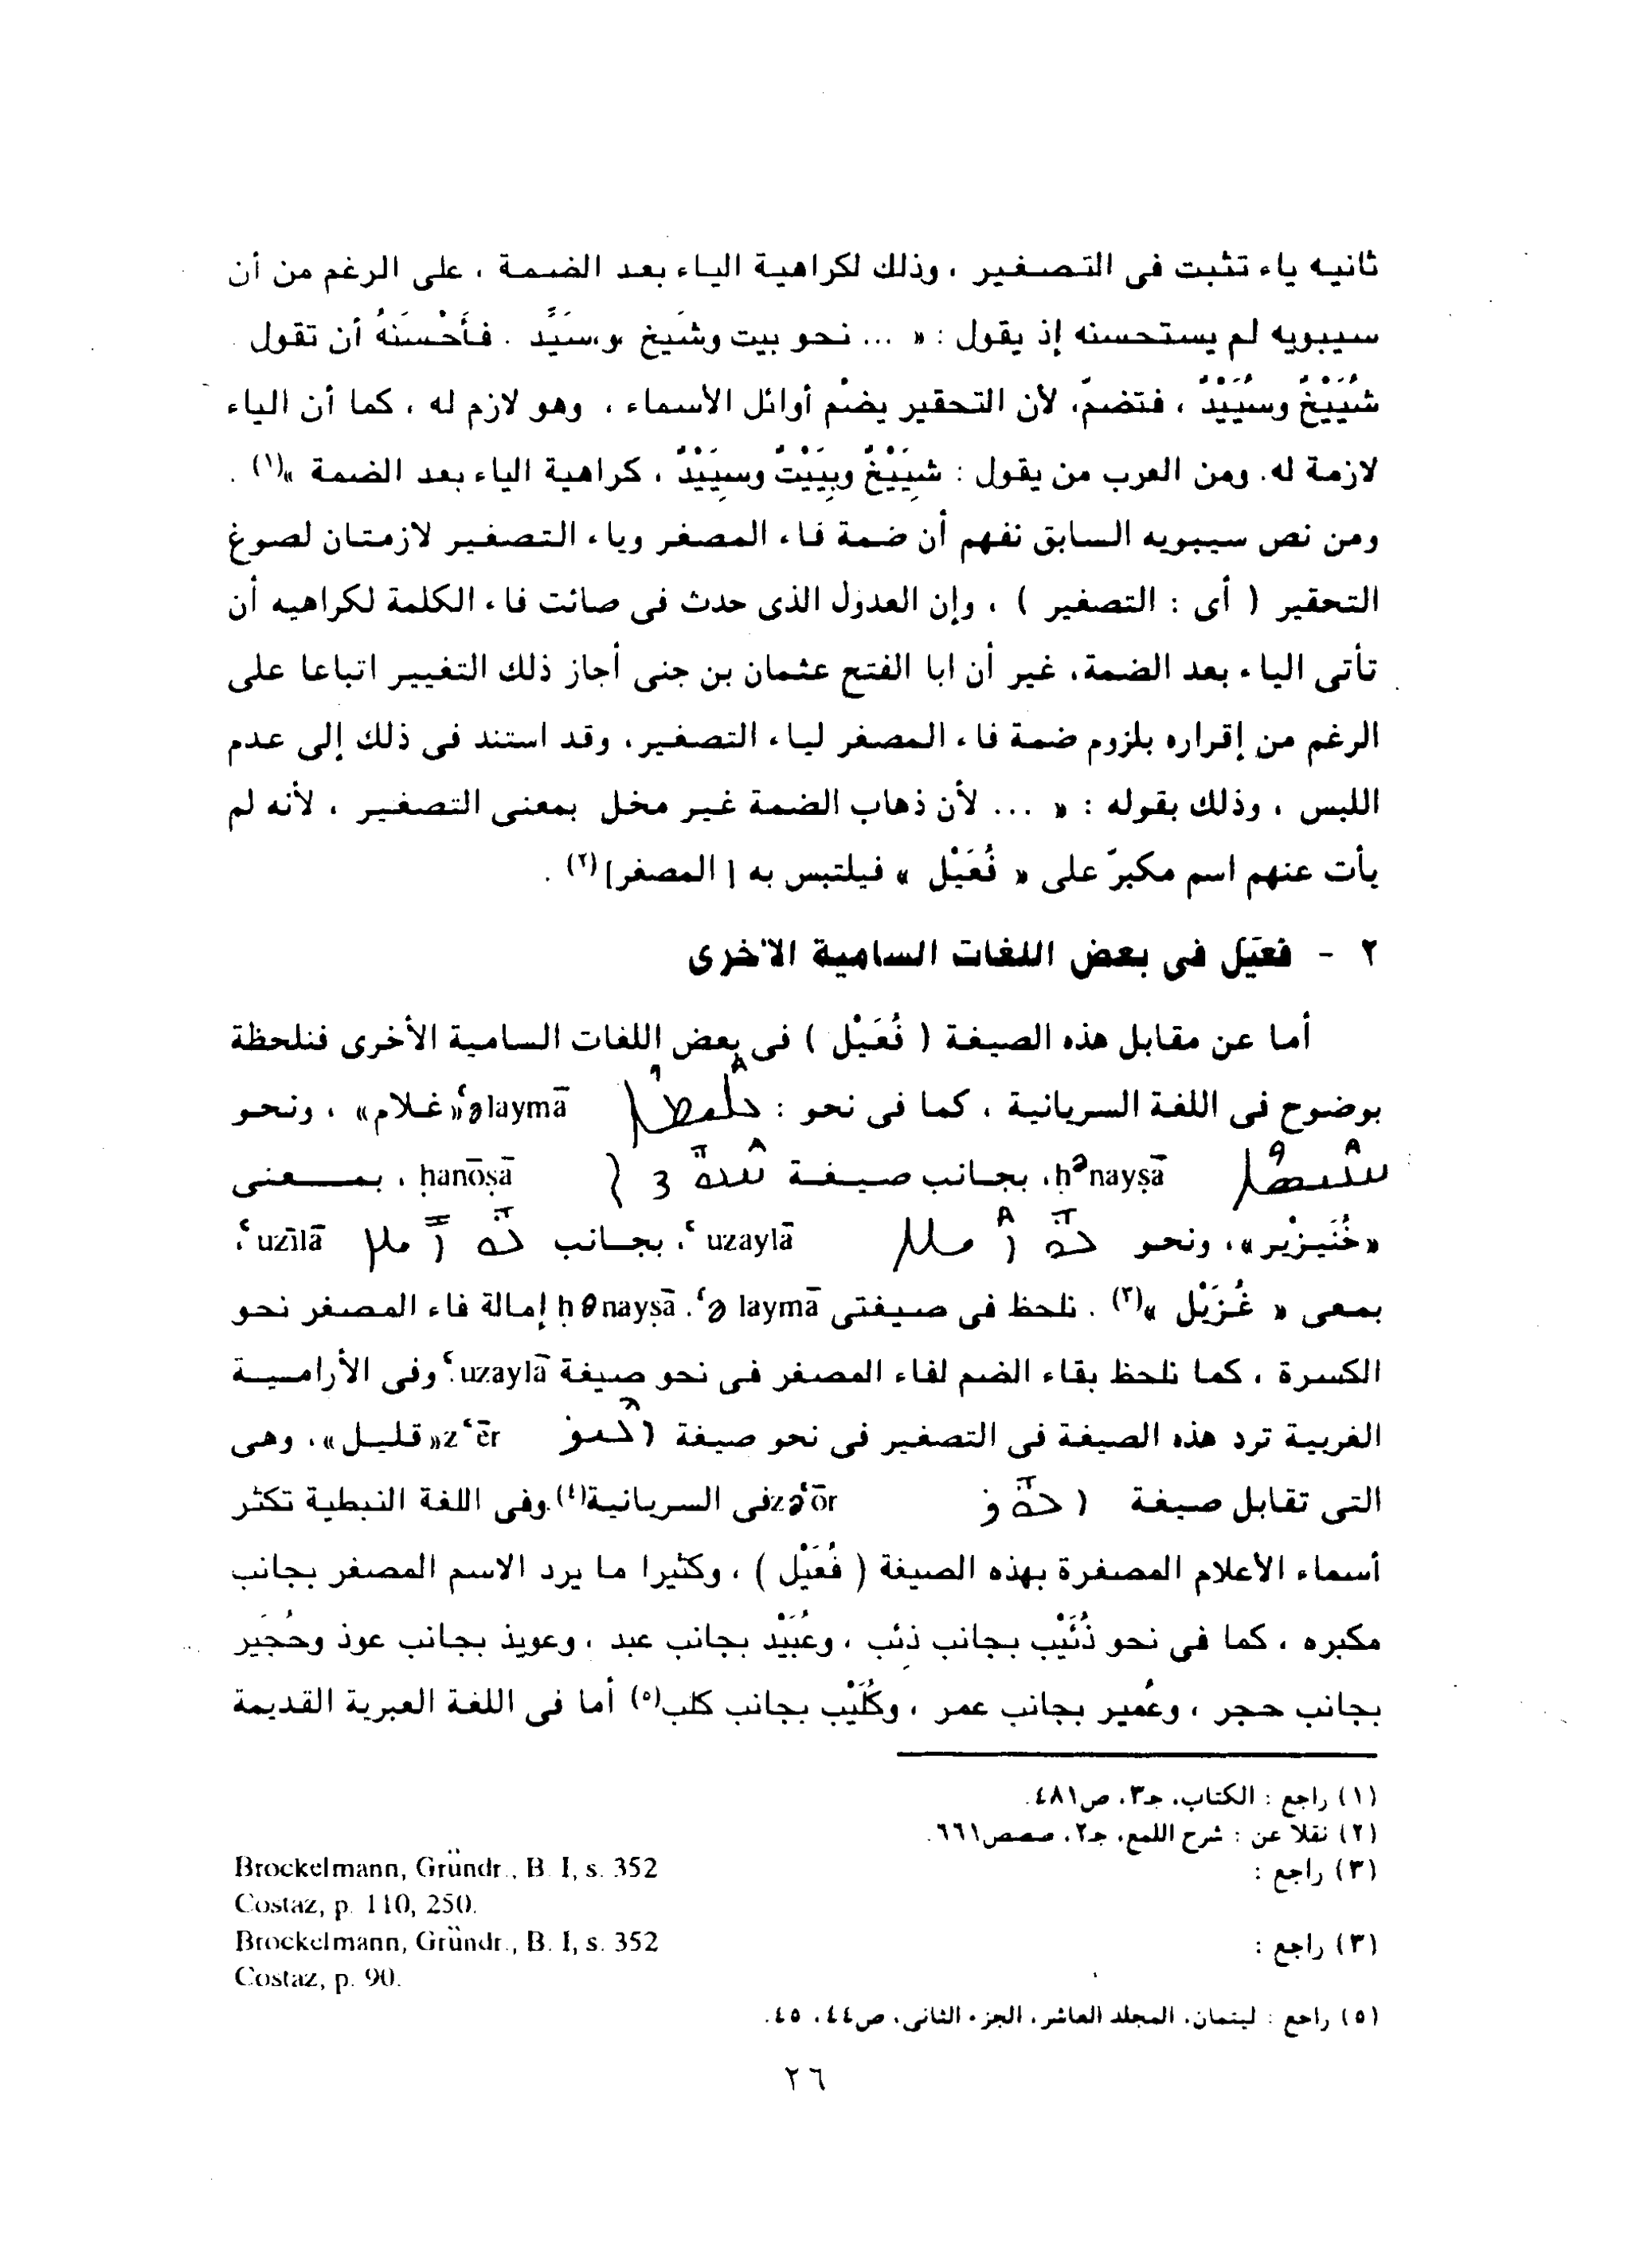 ثانيه ياء تثبت فى التصغير ، وذلك لكراهية الياء بعد الضمة ، على الرغم من أن
سيبويه لم يستحسنه إذ يقول : « ... نحو بيت وشَيخ و،سَيَّد . فأَحْسَنَهُ أن تقول
شُيَيْخُ وسُيَيْدُ ، فتضمّ، لأن التحقير يضمْ أوائل الأسماء ، وهو لازم له ، كما أن الياء
لازمة له. ومن العرب من يقول : شِيَيْخُ وبِيَيْتُ وسِيَيْدُ ، كراهية الياء بعد الضمة »(١) .
ومن نص سيبويه السابق نفهم أن ضمة فاء المصغر وياء التصغير لازمتان لصوغ
التحقير ( أى : التصغير ) ، وإن العدول الذى حدث فى صائت فاء الكلمة لكراهيه أن
تأتى الياء بعد الضمة، غير أن ابا الفتح عثمان بن جنى أجاز ذلك التغيير اتباعا على
الرغم من إقراره بلزوم ضمة فاء المصغر لياء التصغير، وقد استند فى ذلك إلى عدم
اللبس ، وذلك بقوله : « ... لأن ذهاب الضمة غير مخل بمعنى التصغير ، لأنه لم
يأت عنهم اسم مكبرّ على « فُعَيْل » فيلتبس به [ المصغر](٢) .
٢ - فُعَيَل فى بعض اللغات السامية الأخرى
أما عن مقابل هذه الصيغة ( فُعَيْل ) فى بعض اللغات السامية الأخرى فنلحظة
بوضوح فى اللغة السريانية ، كما فى نحو : ʿəlaymā «غلام» ، ونحو
ḥənayṣā، بجانب صيغة ḥanōṣā ، بمعنى
«خُنَيزْير»، ونحو ʿuzaylā، بجانب ʿuzīlā،
بمعى « غُزَيْل »(٣) . نلحظ فى صيغتى ʿə laymā، ḥənayṣā إمالة فاء المصغر نحو
الكسرة ، كما نلحظ بقاء الضم لفاء المصغر فى نحو صيغة ʿuzaylā. وفى الأرامية
الغربية ترد هذه الصيغة فى التصغير فى نحو صيغة zʿēr «قليل»، وهى
التى تقابل صيغة zəʿōr فى السريانية(٤). وفى اللغة النبطية تكثر
أسماء الأعلام المصغرة بهذه الصيغة ( فُعَيْل ) ، وكثيرا ما يرد الاسم المصغر بجانب
مكبره ، كما فى نحو ذُئَيْب بجانب ذئب ، وعُبَيْد بجانب عبد ، وعويذ بجانب عوذ وحُجَير
بجانب حجر ، وعُمير بجانب عمر ، وكُلَيْب بجانب كلب(٥) أما فى اللغة العبرية القديمة
(١) راجع : الكتاب، جـ٣، ص٤٨١.
(٢) نقلا عن : شرح اللمع، جـ٢، صصص٦٦١.
(٣) راجع : Brockelmann, Gründr., B. I, s. 352
Costaz, p. 110, 250.
(٣) راجع : Brockelmann, Gründr., B. I, s. 352
Costaz, p. 90.
(٥) راجع : ليتمان، المجلد العاشر، الجزء الثانى، ص٤٤، ٤٥.
٢٦